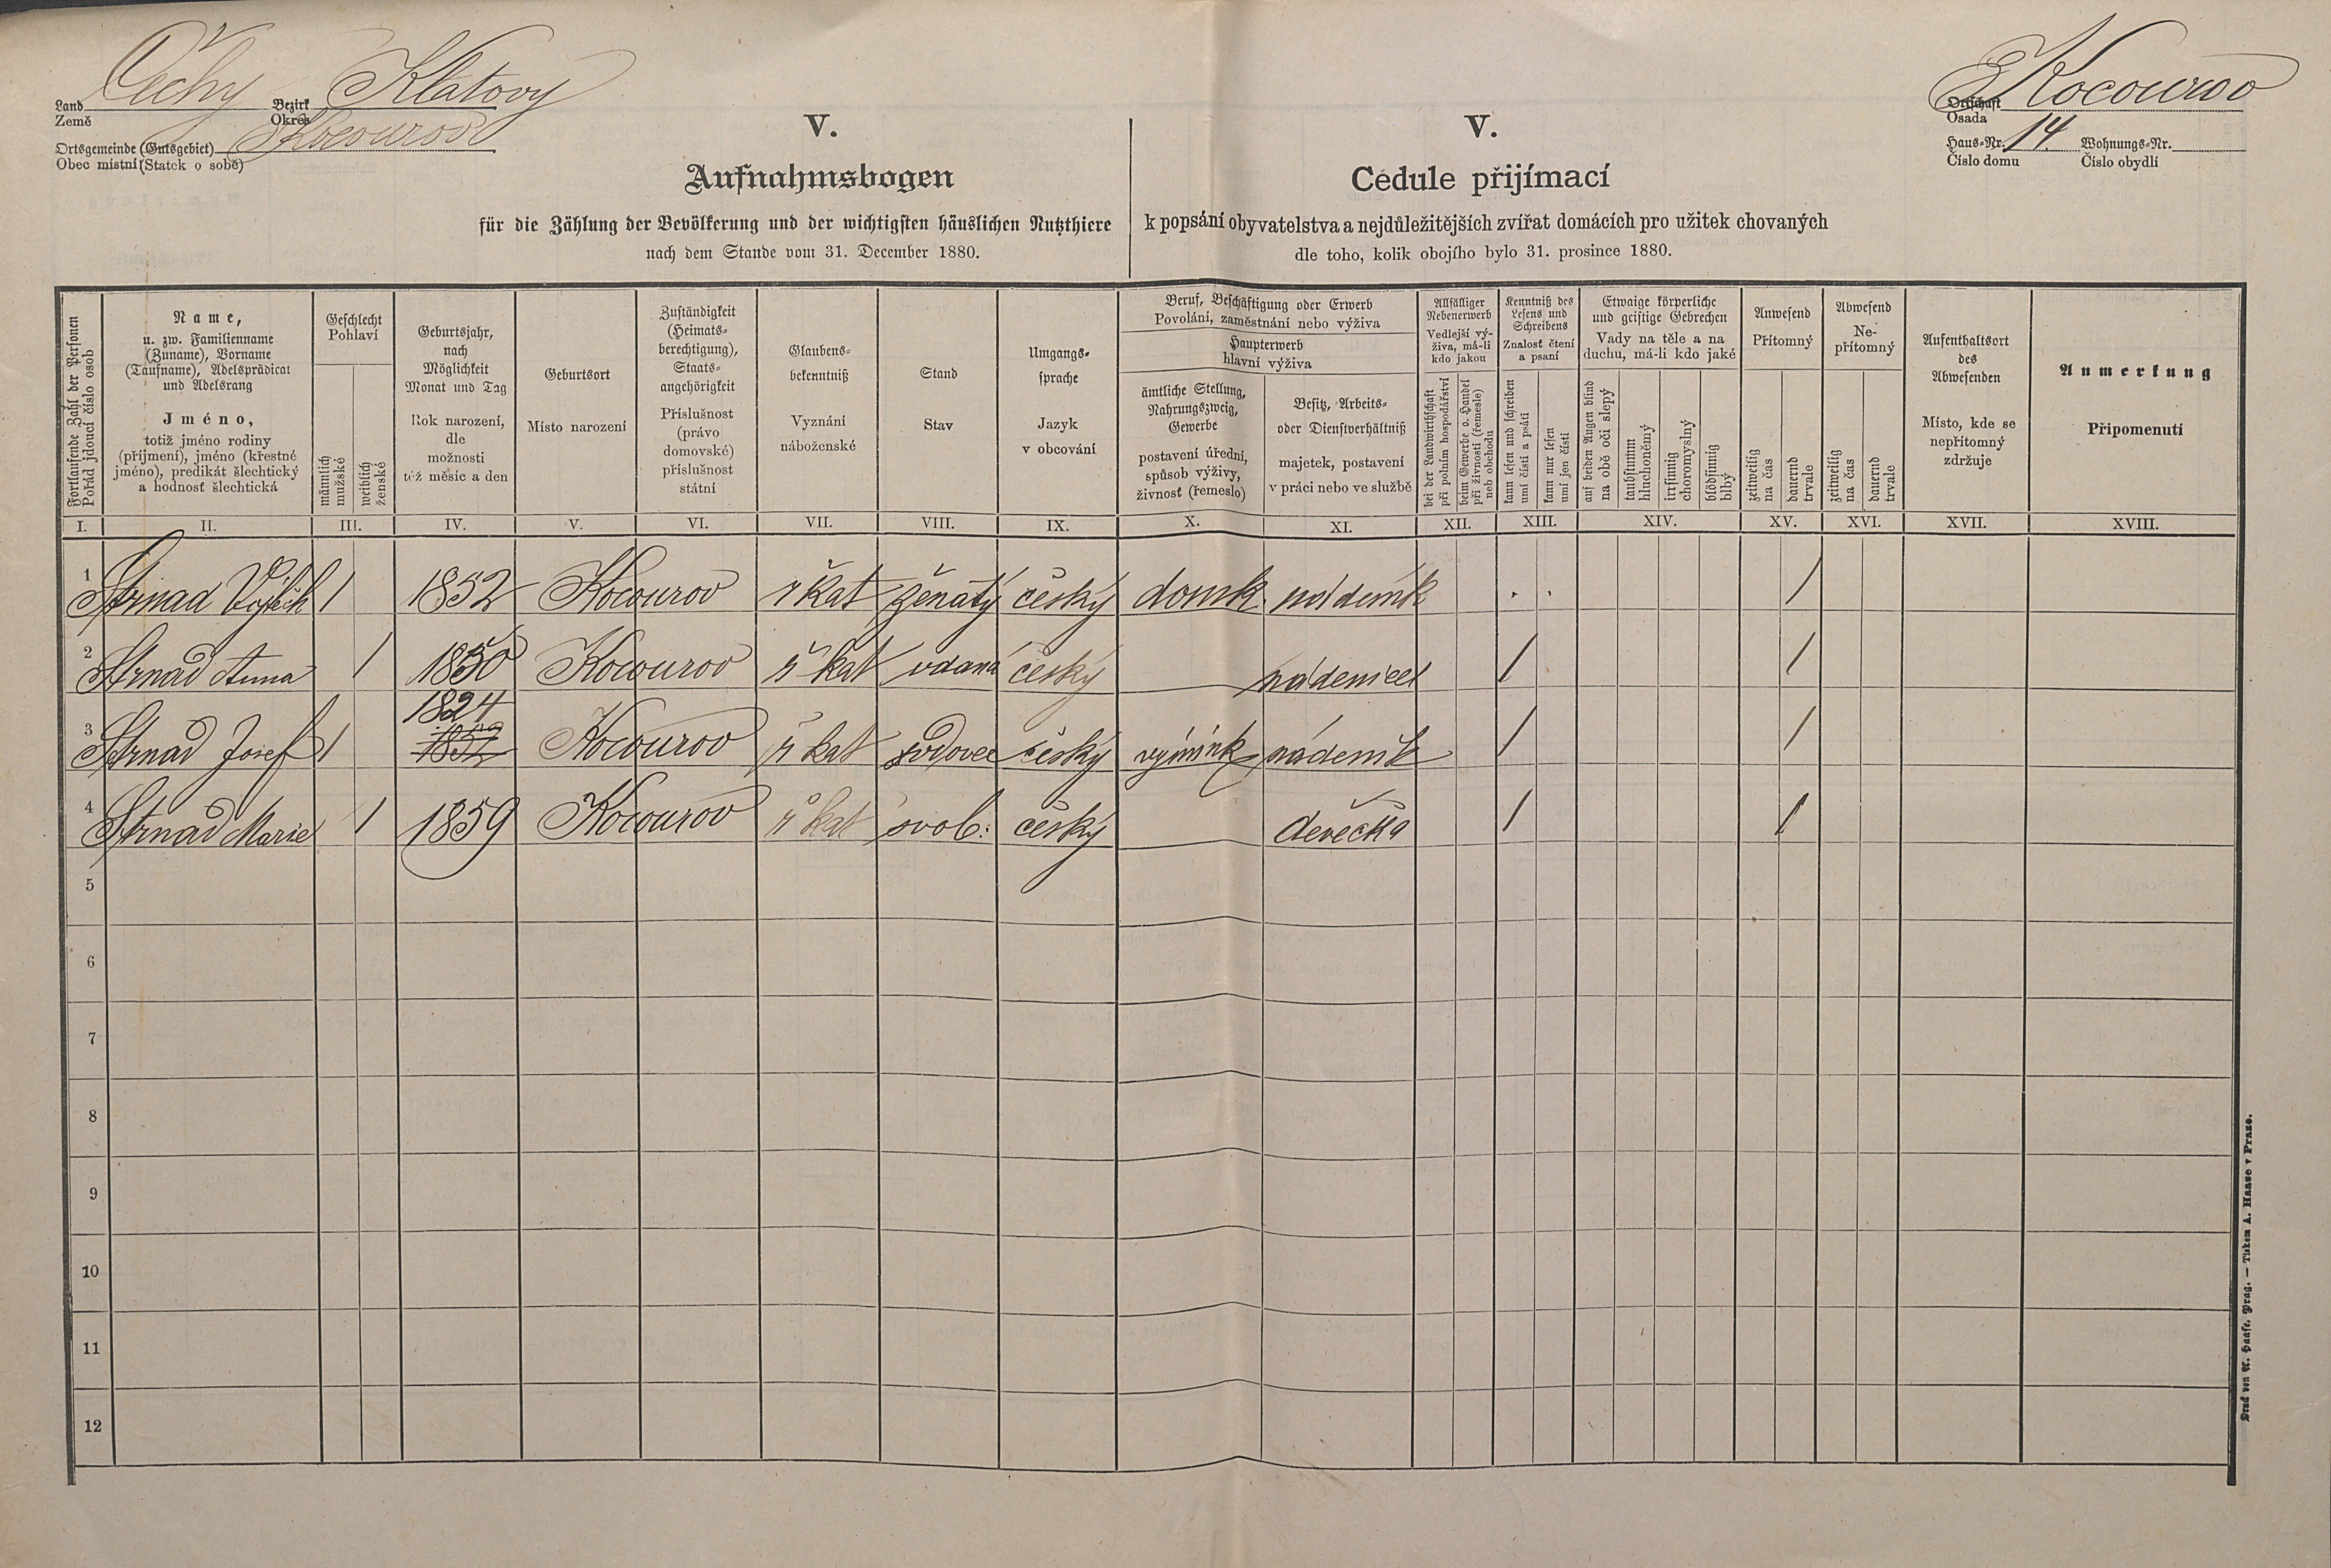 Land Čechy Bezirk Klatovy
Země Okres
Ortsgemeinde (Gutsgebiet) Kocourov
Obec místní (Statek o sobě)
E Kocourov
Ortschaft
Osada
Haus-Nr. 14. Wohnungs-Nr.
Číslo domu Číslo obydlí
V.
Aufnahmsbogen
für die Zählung der Bevölkerung und der wichtigsten häuslichen Nutzthiere
nach dem Stande vom 31. December 1880.
V.
Cedule přijímací
k popsání obyvatelstva a nejdůležitějších zvířat domácích pro užitek chovaných
dle toho, kolik obojího bylo 31. prosince 1880.
Fortlaufende Zahl der Personen
Pořád jdoucí číslo osob
Name,
u. zw. Familienname
(Zuname), Vorname
(Taufname), Adelsprädicat
und Adelsrang
Jméno,
totiž jméno rodiny
(příjmení), jméno (křestné
jméno), predikát šlechtický
a hodnost šlechtická
Geschlecht
Pohlaví
männlich
mužské
weiblich
ženské
Geburtsjahr,
nach
Möglichkeit
Monat und Tag
Rok narození,
dle
možnosti
též měsíc a den
Geburtsort
Místo narození
Zuständigkeit
(Heimats-
berechtigung),
Staats-
angehörigkeit
Příslušnost
(právo
domovské)
příslušnost
státní
Glaubens-
bekenntniß
Vyznání
náboženské
Stand
Stav
Umgangs-
sprache
Jazyk
v obcování
Beruf, Beschäftigung oder Erwerb
Povolání, zaměstnání nebo výživa
Haupterwerb
hlavní výživa
ämtliche Stellung,
Nahrungszweig,
Gewerbe
postavení úřední,
spůsob výživy,
živnost (řemeslo)
Besitz, Arbeits-
oder Dienstverhältniß
majetek, postavení
v práci nebo ve službě
Allfälliger
Nebenerwerb
Vedlejší vý-
živa, má-li
kdo jakou
bei der Landwirthschaft
při polním hospodářství
beim Gewerbe o. Handel
při živnosti (řemesle)
neb obchodu
Kenntniß des
Lesens und
Schreibens
Znalost čtení
a psaní
kann lesen und schreiben
umí čísti a psáti
kann nur lesen
umí jen čísti
Etwaige körperliche
und geistige Gebrechen
Vady na těle a na
duchu, má-li kdo jaké
auf beiden Augen blind
na obě oči slepý
taubstumm
hluchoněmý
irrsinnig
choromyslný
blödsinnig
blbý
Anwesend
Přítomný
zeitweilig
na čas
dauernd
trvale
Abwesend
Ne-
přítomný
zeitweilig
na čas
dauernd
trvale
Aufenthaltsort
des
Abwesenden
Místo, kde se
nepřítomný
zdržuje
Anmerkung
Připomenutí
I. II. III. IV. V. VI. VII. VIII. IX. X. XI. XII. XIII. XIV. XV. XVI. XVII. XVIII.
1 Strnad Vojtěch 1 1852 Kocourov ř kat ženatý český domk. nádeník . . /
2 Strnad Anna / 1850 Kocourov ř kat vdaná český / /
1824
3 Strnad Josef 1 1852 Kocourov ř kat vdovec český výmink nádeník / /
4 Strnad Marie 1 1859 Kocourov ř kat svob: český děvečka / /
5
6
7
8
9
10
11
12
Druck von A. Haase, Prag. — Tiskem A. Haase v Praze.